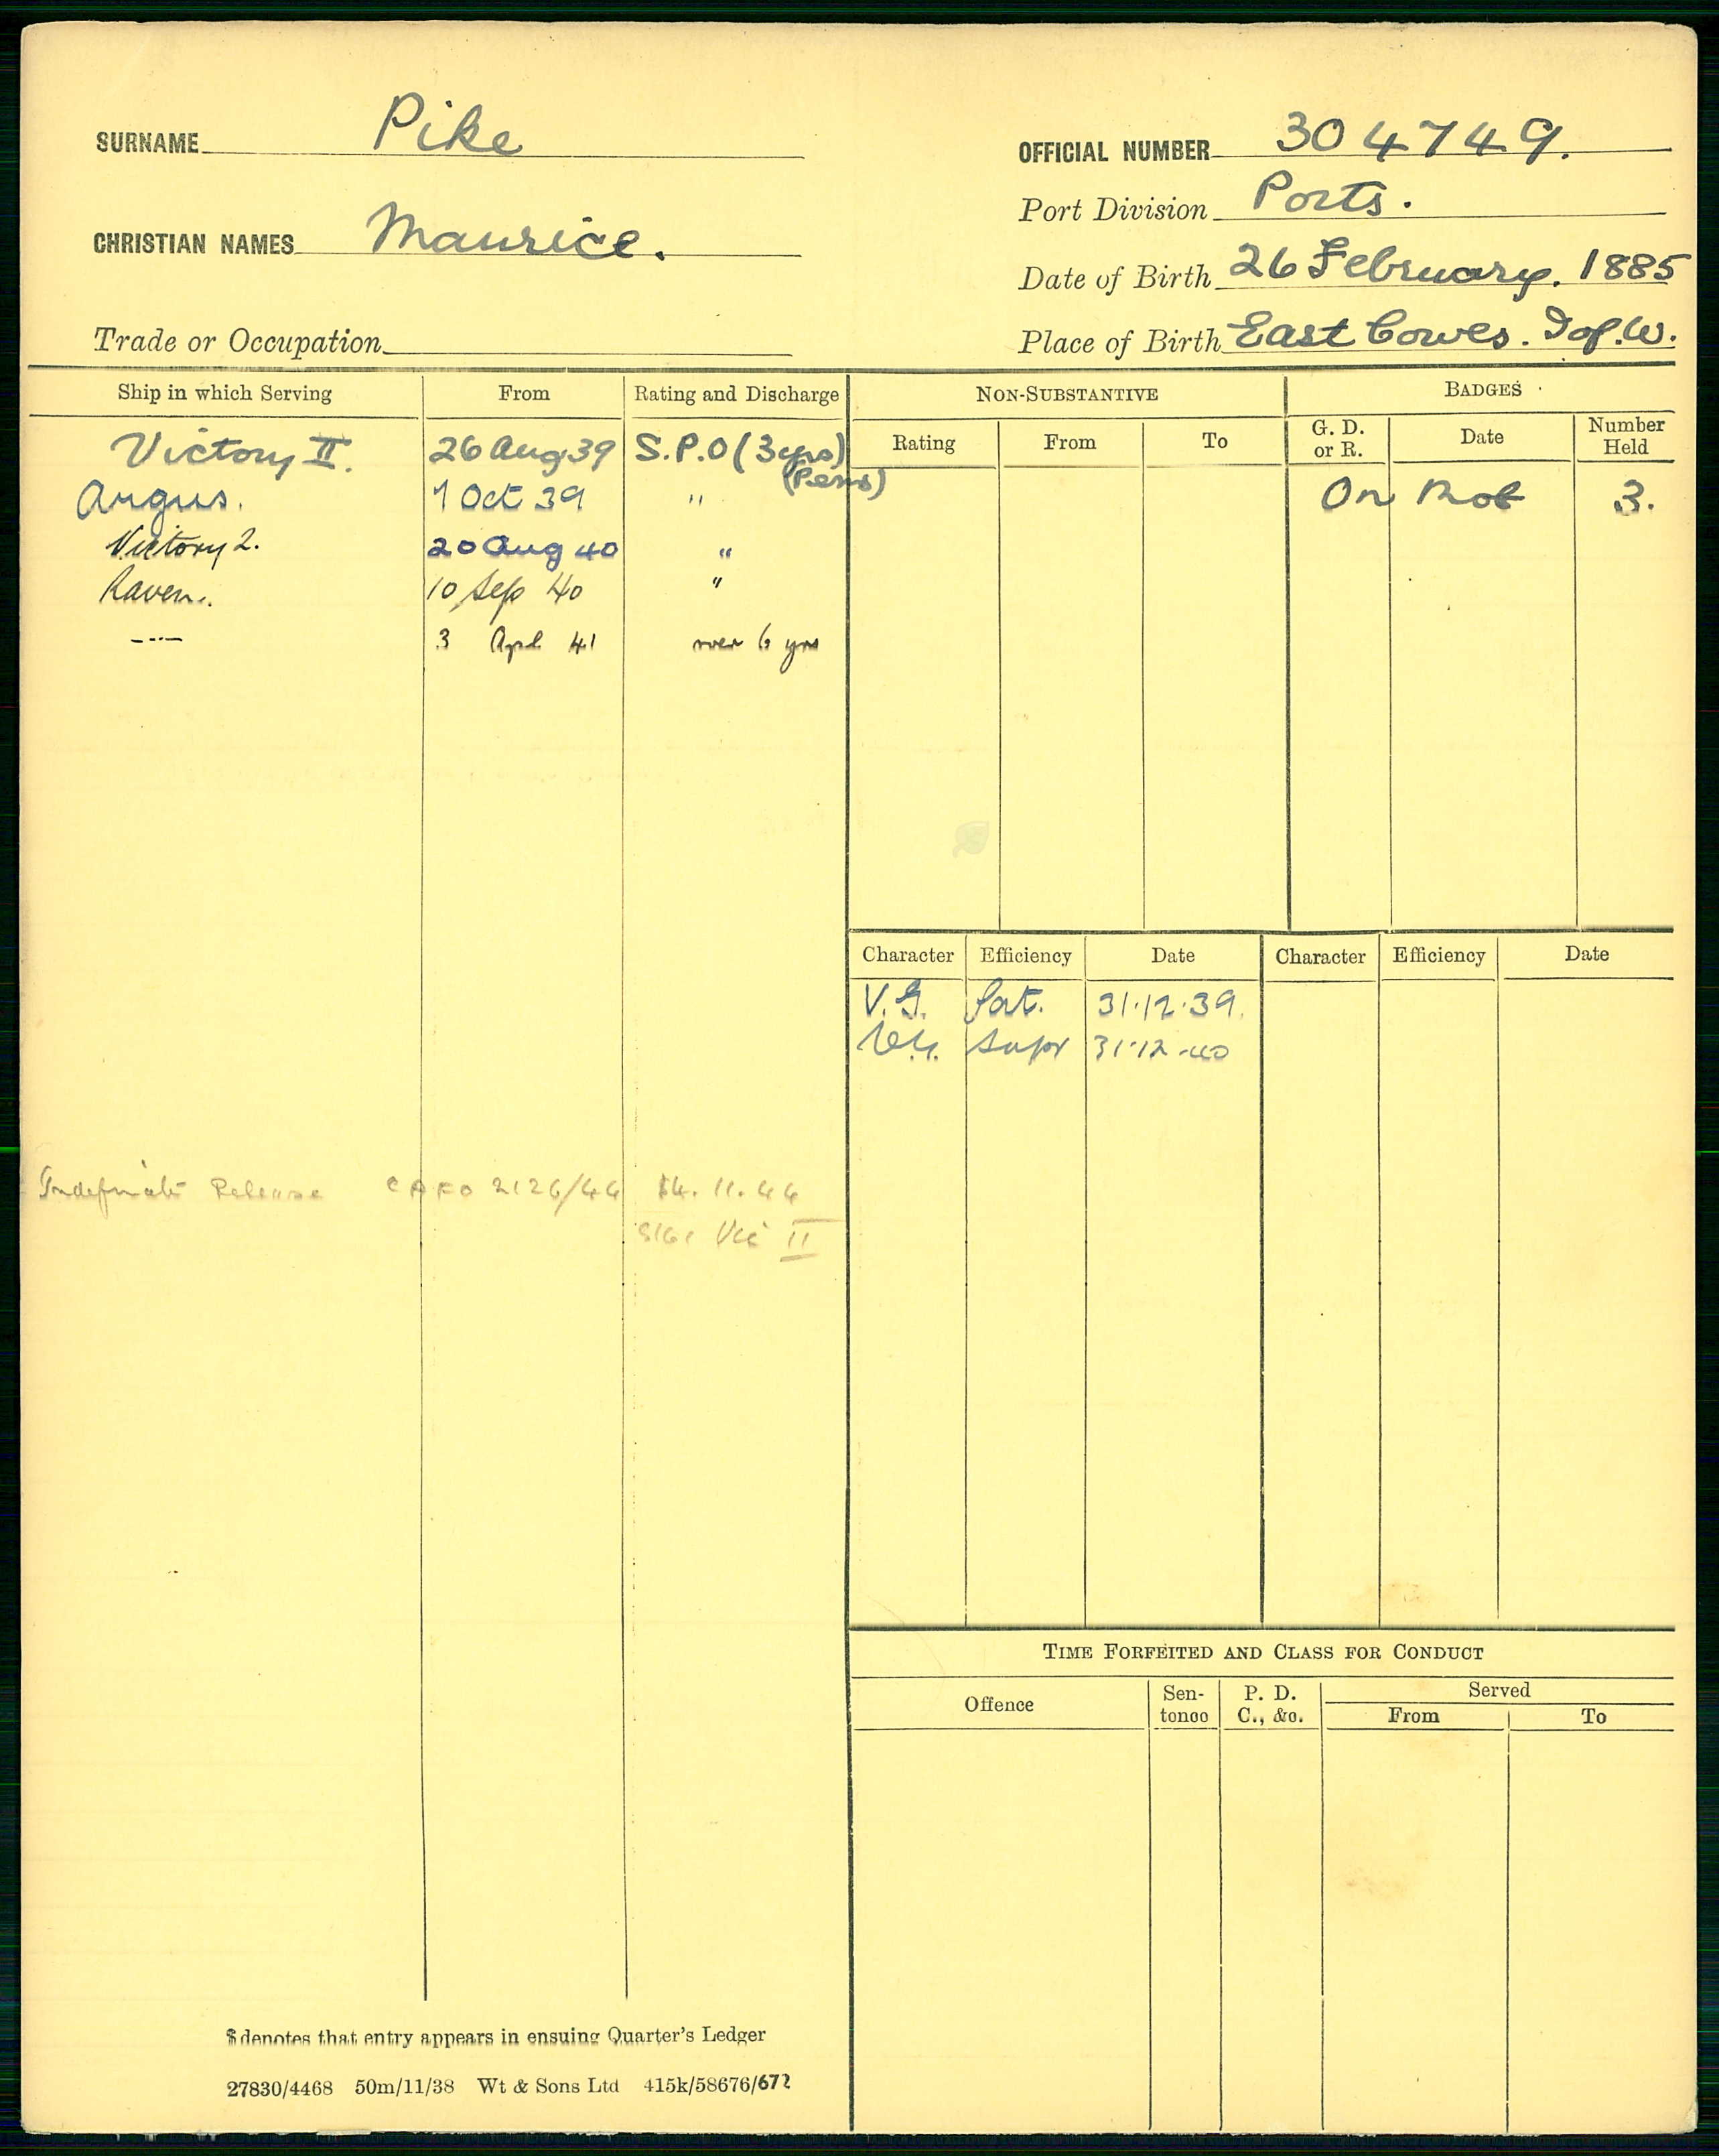 SURNAME Pike
OFFICIAL NUMBER 304749.
Port Division Ports.
CHRISTIAN NAMES Maurice.
Date of Birth 26 February. 1885
Trade or Occupation
Place of Birth East Cowes. I of. W.
Ship in which Serving From Rating and Discharge
Victory II. 26 Aug 39 S.P.O (3yrs)
(Pens)
Argus. 7 Oct 39 "
Victory 2. 20 Aug 40 "
Raven. 10 Sep 40 "
-"- 3 Apl 41 over 6 yrs
Indefinite Release CAFO 2126/44 14.11.44
Vic II
NON-SUBSTANTIVE
Rating From To
BADGES
G. D. or R. Date Number Held
On Mob 3.
Character Efficiency Date Character Efficiency Date
V.G. Sat. 31.12.39.
VG. Supr 31.12.40
TIME FORFEITED AND CLASS FOR CONDUCT
Offence Sen-tence P. D. C., &c. Served
From To
$ denotes that entry appears in ensuing Quarter's Ledger
27830/4468 50m/11/38 Wt & Sons Ltd 415k/58676/672